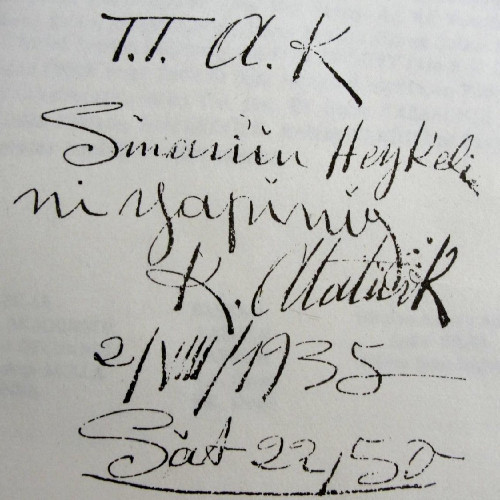 T.T. A. K
Sinanın Heykeli
ni yapınız
K. Atatürk
2/VIII/1935
Sāt 22,50